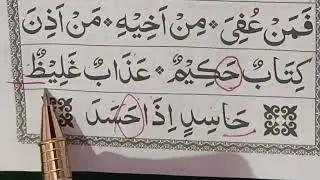 فَمَنْ عُفِيَ * مِنْ اَخِيْهِ * مَنْ اَذِنَ
كِتَابٌ حَكِيْمٌ * عَذَابٌ غَلِيْظٌ
حَاسِدٍ اِذَا حَسَدَ